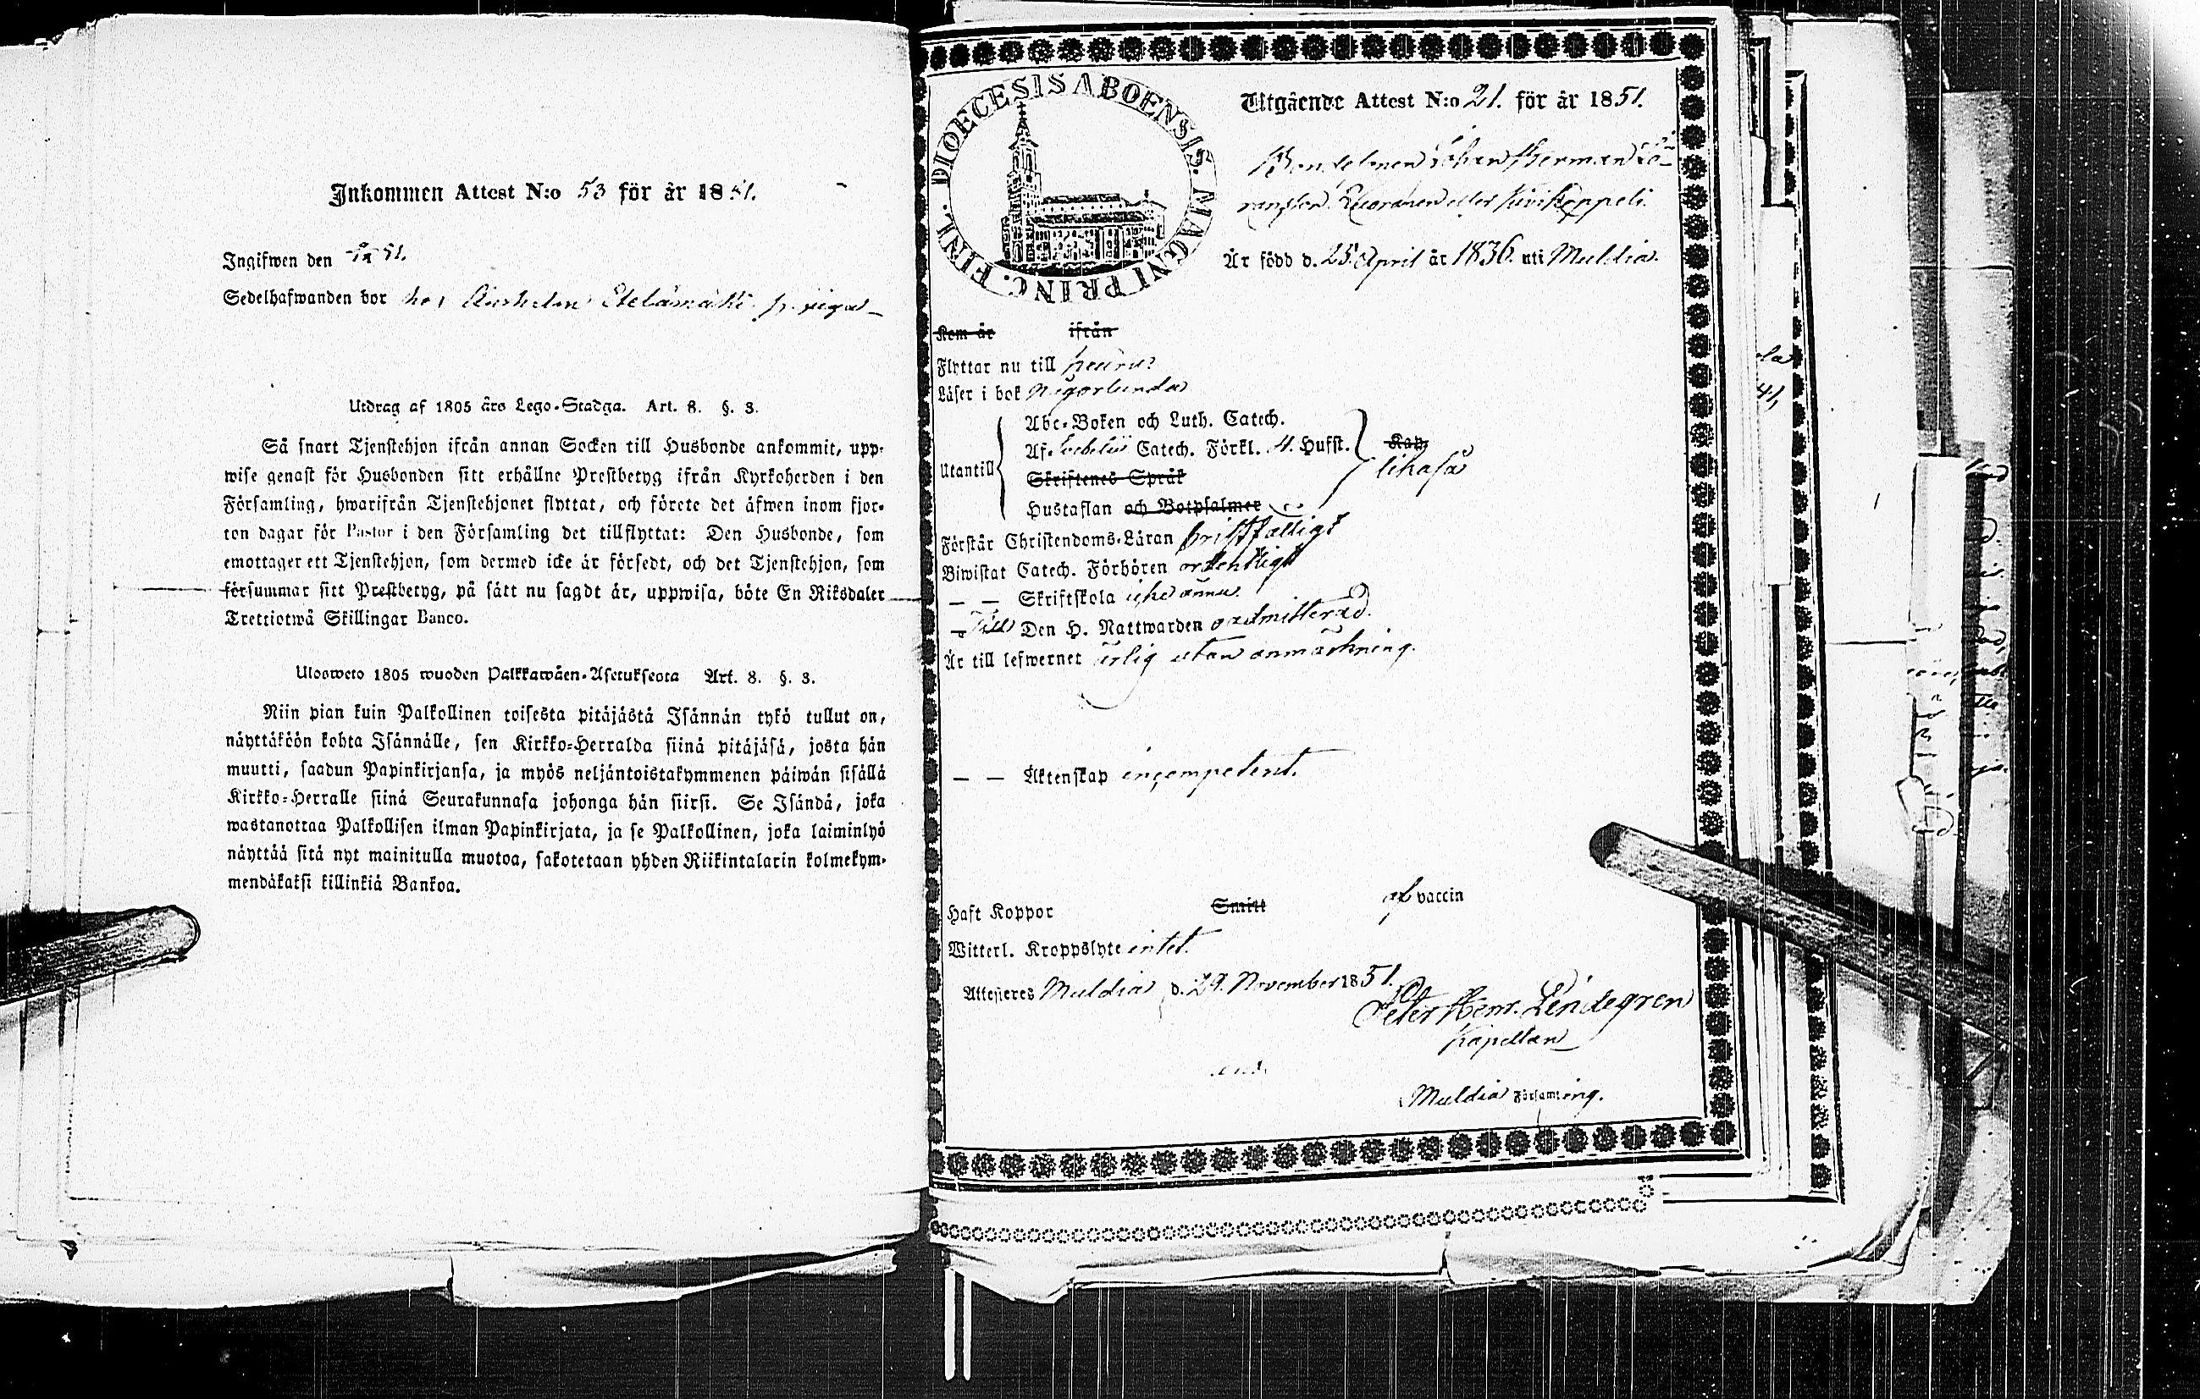 Inkommen Attest N:o 53 för år 1851.
Ingifwen den 51.
Sedelhafwanden bor hos Etelämäki
Utdrag af 1805 års Lego-Stadga. Art. 8. §. 3.
Så snart Tjenstehjon ifrån annan Socken till Husbonde ankommit, upp-
wise genast för Husbonden sitt erhållne Prestbetyg ifrån Kyrkoherden i den
Församling, hwarifrån Tjenstehjonet flyttat, och förete det äfwen inom fjor-
ton dagar för Pastor i den Församling det tillflyttat: Den Husbonde, som
emottager ett Tjenstehjon, som dermed icke är försedt, och det Tjenstehjon, som
försummar sitt Prestbetyg, på sätt nu sagdt är, uppwisa, böte En Riksdaler
Trettiotwå Skillingar Banco.
Ulosweto 1805 wuoden Palkkawäen-Asetuksesta Art. 8. §. 3.
Niin pian kuin Palkollinen toisesta pitäjästä Isännän tykö tullut on,
näyttäköön kohta Isännälle, sen Kirkko-Herralda siinä pitäjäsä, josta hän
muutti, saadun Papinkirjansa, ja myös neljäntoistakymmenen päiwän sisällä
Kirkko-Herralle siinä Seurakunnasa johonga hän siirsi. Se Isändä, joka
wastanottaa Palkollisen ilman Papinkirjata, ja se Palkollinen, joka laiminlyö
näyttää sitä nyt mainitulla muotoa, sakotetaan yhden Riikintalarin kolmekym-
mendäkaksi killinkiä Bankoa.
DIOECESIS ABOENSIS. MAGNI PRINC. FINL.
Utgående Attest N:o 21. för år 1851.
Bondesonen Johan Herman Gö-
ransson eller Kivikoppeli
Är född d. 25 April år 1836. uti Muldia.
Kom år ifrån
Flyttar nu till Keuru
Läser i bok någorlunda
Utantill
Abc-Boken och Luth. Catech.
Af. Catech. Förkl. 4. Hufst.
Skriftenes Språk
Hustaflan och Botpsalmer
Kan
likaså
Förstår Christendoms-Läran bristfälligt
Biwistat Catech. Förhören ordentligt
— — Skriftskola icke ännu
Till Den H. Nattwarden oadmitterad.
Är till lefwernet ärlig utan anmärkning.
— — Äktenskap incompetent.
Haft Koppor Smitt af vaccin
Witterl. Kroppslyte intet.
Attesteres Muldia d. 29. November 1851.
Peter Henr. Lindegren
Kapellan
Muldia Församling.